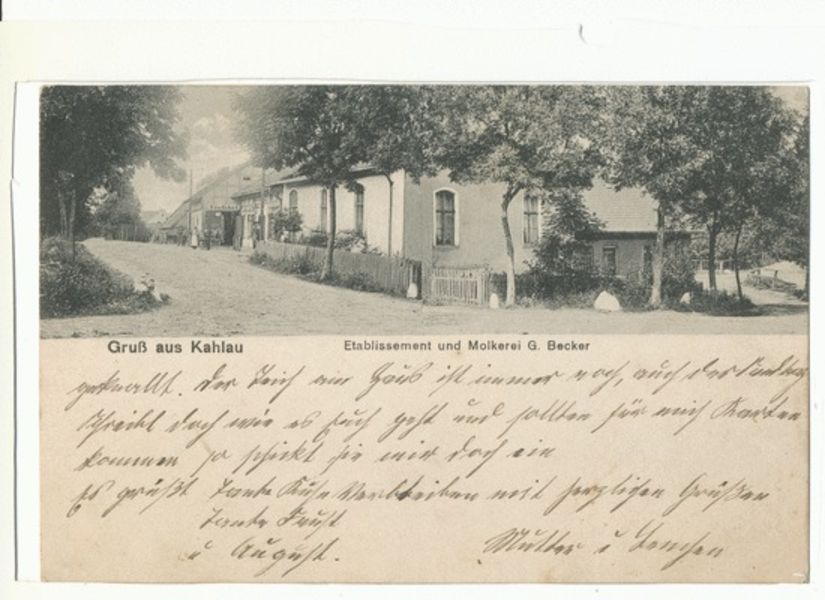 Gruß aus Kahlau
Etablissement und Molkerei G. Becker
geknallt. Der Teich am Haus ist immer noch, auch der
schreibt doch wie es Euch geht und sollten für mich Karten
kommen so schickt sie mir doch ein
Es grüßt Tante Verbleiben mit herzlichen Grüßen
Tante
u August.
Mutter u